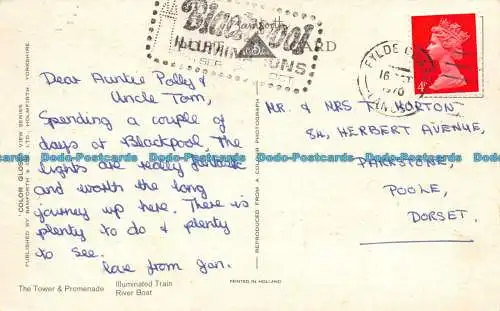 Blackpool
ILLUMINATIONS
CARD
FYLDE
16
1970
Dear Auntie Polly &
Uncle Tom,
Spending a couple of
days at Blackpool, the
lights are really fantastic
and worth the long
journey up here. There is
plenty to do & plenty
to see.
love from Jan.
Mr. & MRS T. HORTON
84, HERBERT AVENUE,
PARKSTONE,
POOLE,
DORSET.
"COLOR GLOSS" VIEW SERIES
PUBLISHED BY BAMFORTH & CO. LTD., HOLMFIRTH, YORKSHIRE.
REPRODUCED FROM A COLOUR PHOTOGRAPH
The Tower & Promenade
Illuminated Train
River Boat
PRINTED IN HOLLAND
Dodo-Postcards Dodo-Postcards Dodo-Postcards Dodo-Postcards Dodo-Postcards